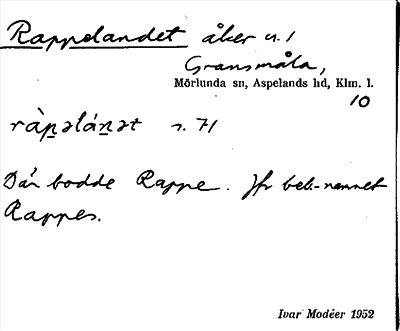 Rappelandet åker n. 1
Gransmåla,
Mörlunda sn, Aspelands hd, Klm. l.
10
ràp̱əláṉət s. 71
Där bodde Rappe. Jfr beb.-namnet
Rappes.
Ivar Modéer 1952